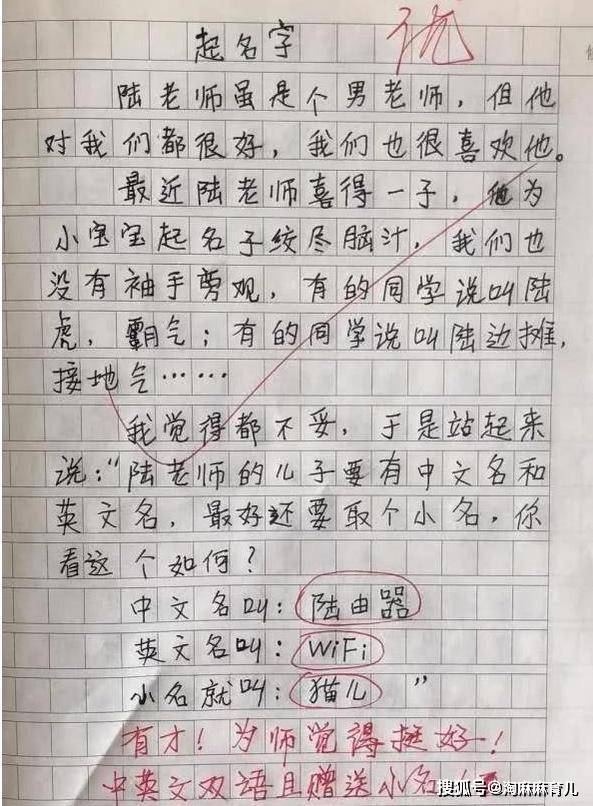 起名字
优
陆老师虽是个男老师，但他
对我们都很好，我们也很喜欢他。
最近陆老师喜得一子，他为
小宝宝起名子绞尽脑汁，我们也
没有袖手旁观，有的同学说叫陆
虎，霸气；有的同学说叫陆边摊，
接地气……
我觉得都不妥，于是站起来
说：“陆老师的儿子要有中文名和
英文名，最好还要取个小名，你
看这个如何？
中文名叫：陆由器
英文名叫：WiFi
小名就叫：猫儿”
有才！为师觉得挺好！
中英文双语且赠送小名
搜狐号@淘麻麻育儿